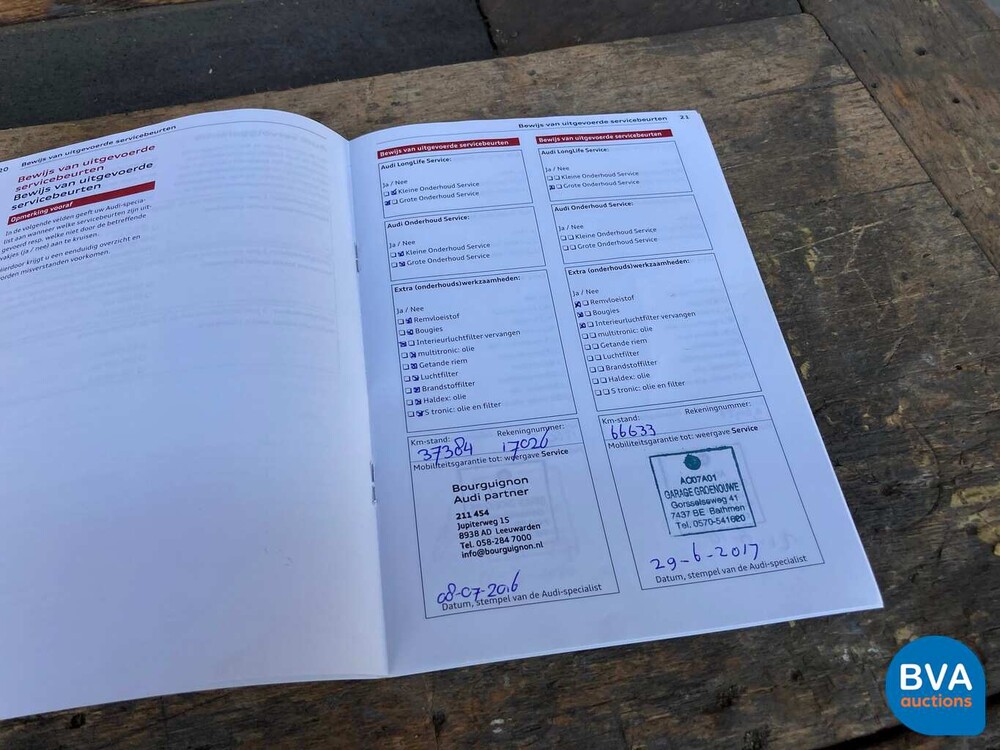 20
Bewijs van uitgevoerde servicebeurten
Bewijs van uitgevoerde
servicebeurten
Bewijs van uitgevoerde
servicebeurten
Opmerking vooraf
In de volgende velden geeft uw Audi-specia-
list aan wanneer welke servicebeurten zijn uit-
gevoerd resp. welke niet door de betreffende
vakjes (ja / nee) aan te kruisen.
Hierdoor krijgt u een eenduidig overzicht en
worden misverstanden voorkomen.
Bewijs van uitgevoerde servicebeurten 21
Bewijs van uitgevoerde servicebeurten
Audi LongLife Service:
Ja / Nee
Kleine Onderhoud Service
Grote Onderhoud Service
Audi Onderhoud Service:
Ja / Nee
Kleine Onderhoud Service
Grote Onderhoud Service
Extra (onderhouds)werkzaamheden:
Ja / Nee
Remvloeistof
Bougies
Interieurluchtfilter vervangen
multitronic: olie
Getande riem
Luchtfilter
Brandstoffilter
Haldex: olie
S tronic: olie en filter
Km-stand: Rekeningnummer:
37384 17026
Mobiliteitsgarantie tot: weergave Service
Bourguignon
Audi partner
211 454
Jupiterweg 15
8938 AD Leeuwarden
Tel. 058-284 7000
info@bourguignon.nl
08-07-2016
Datum, stempel van de Audi-specialist
Bewijs van uitgevoerde servicebeurten
Audi LongLife Service:
Ja / Nee
Kleine Onderhoud Service
Grote Onderhoud Service
Audi Onderhoud Service:
Ja / Nee
Kleine Onderhoud Service
Grote Onderhoud Service
Extra (onderhouds)werkzaamheden:
Ja / Nee
Remvloeistof
Bougies
Interieurluchtfilter vervangen
multitronic: olie
Getande riem
Luchtfilter
Brandstoffilter
Haldex: olie
S tronic: olie en filter
Km-stand: Rekeningnummer:
66633
Mobiliteitsgarantie tot: weergave Service
AO07A01
GARAGE GROENOUWE
Gorsselseweg 41
7437 BE Bathmen
Tel. 0570-541620
29-6-2017
Datum, stempel van de Audi-specialist
BVA
auctions